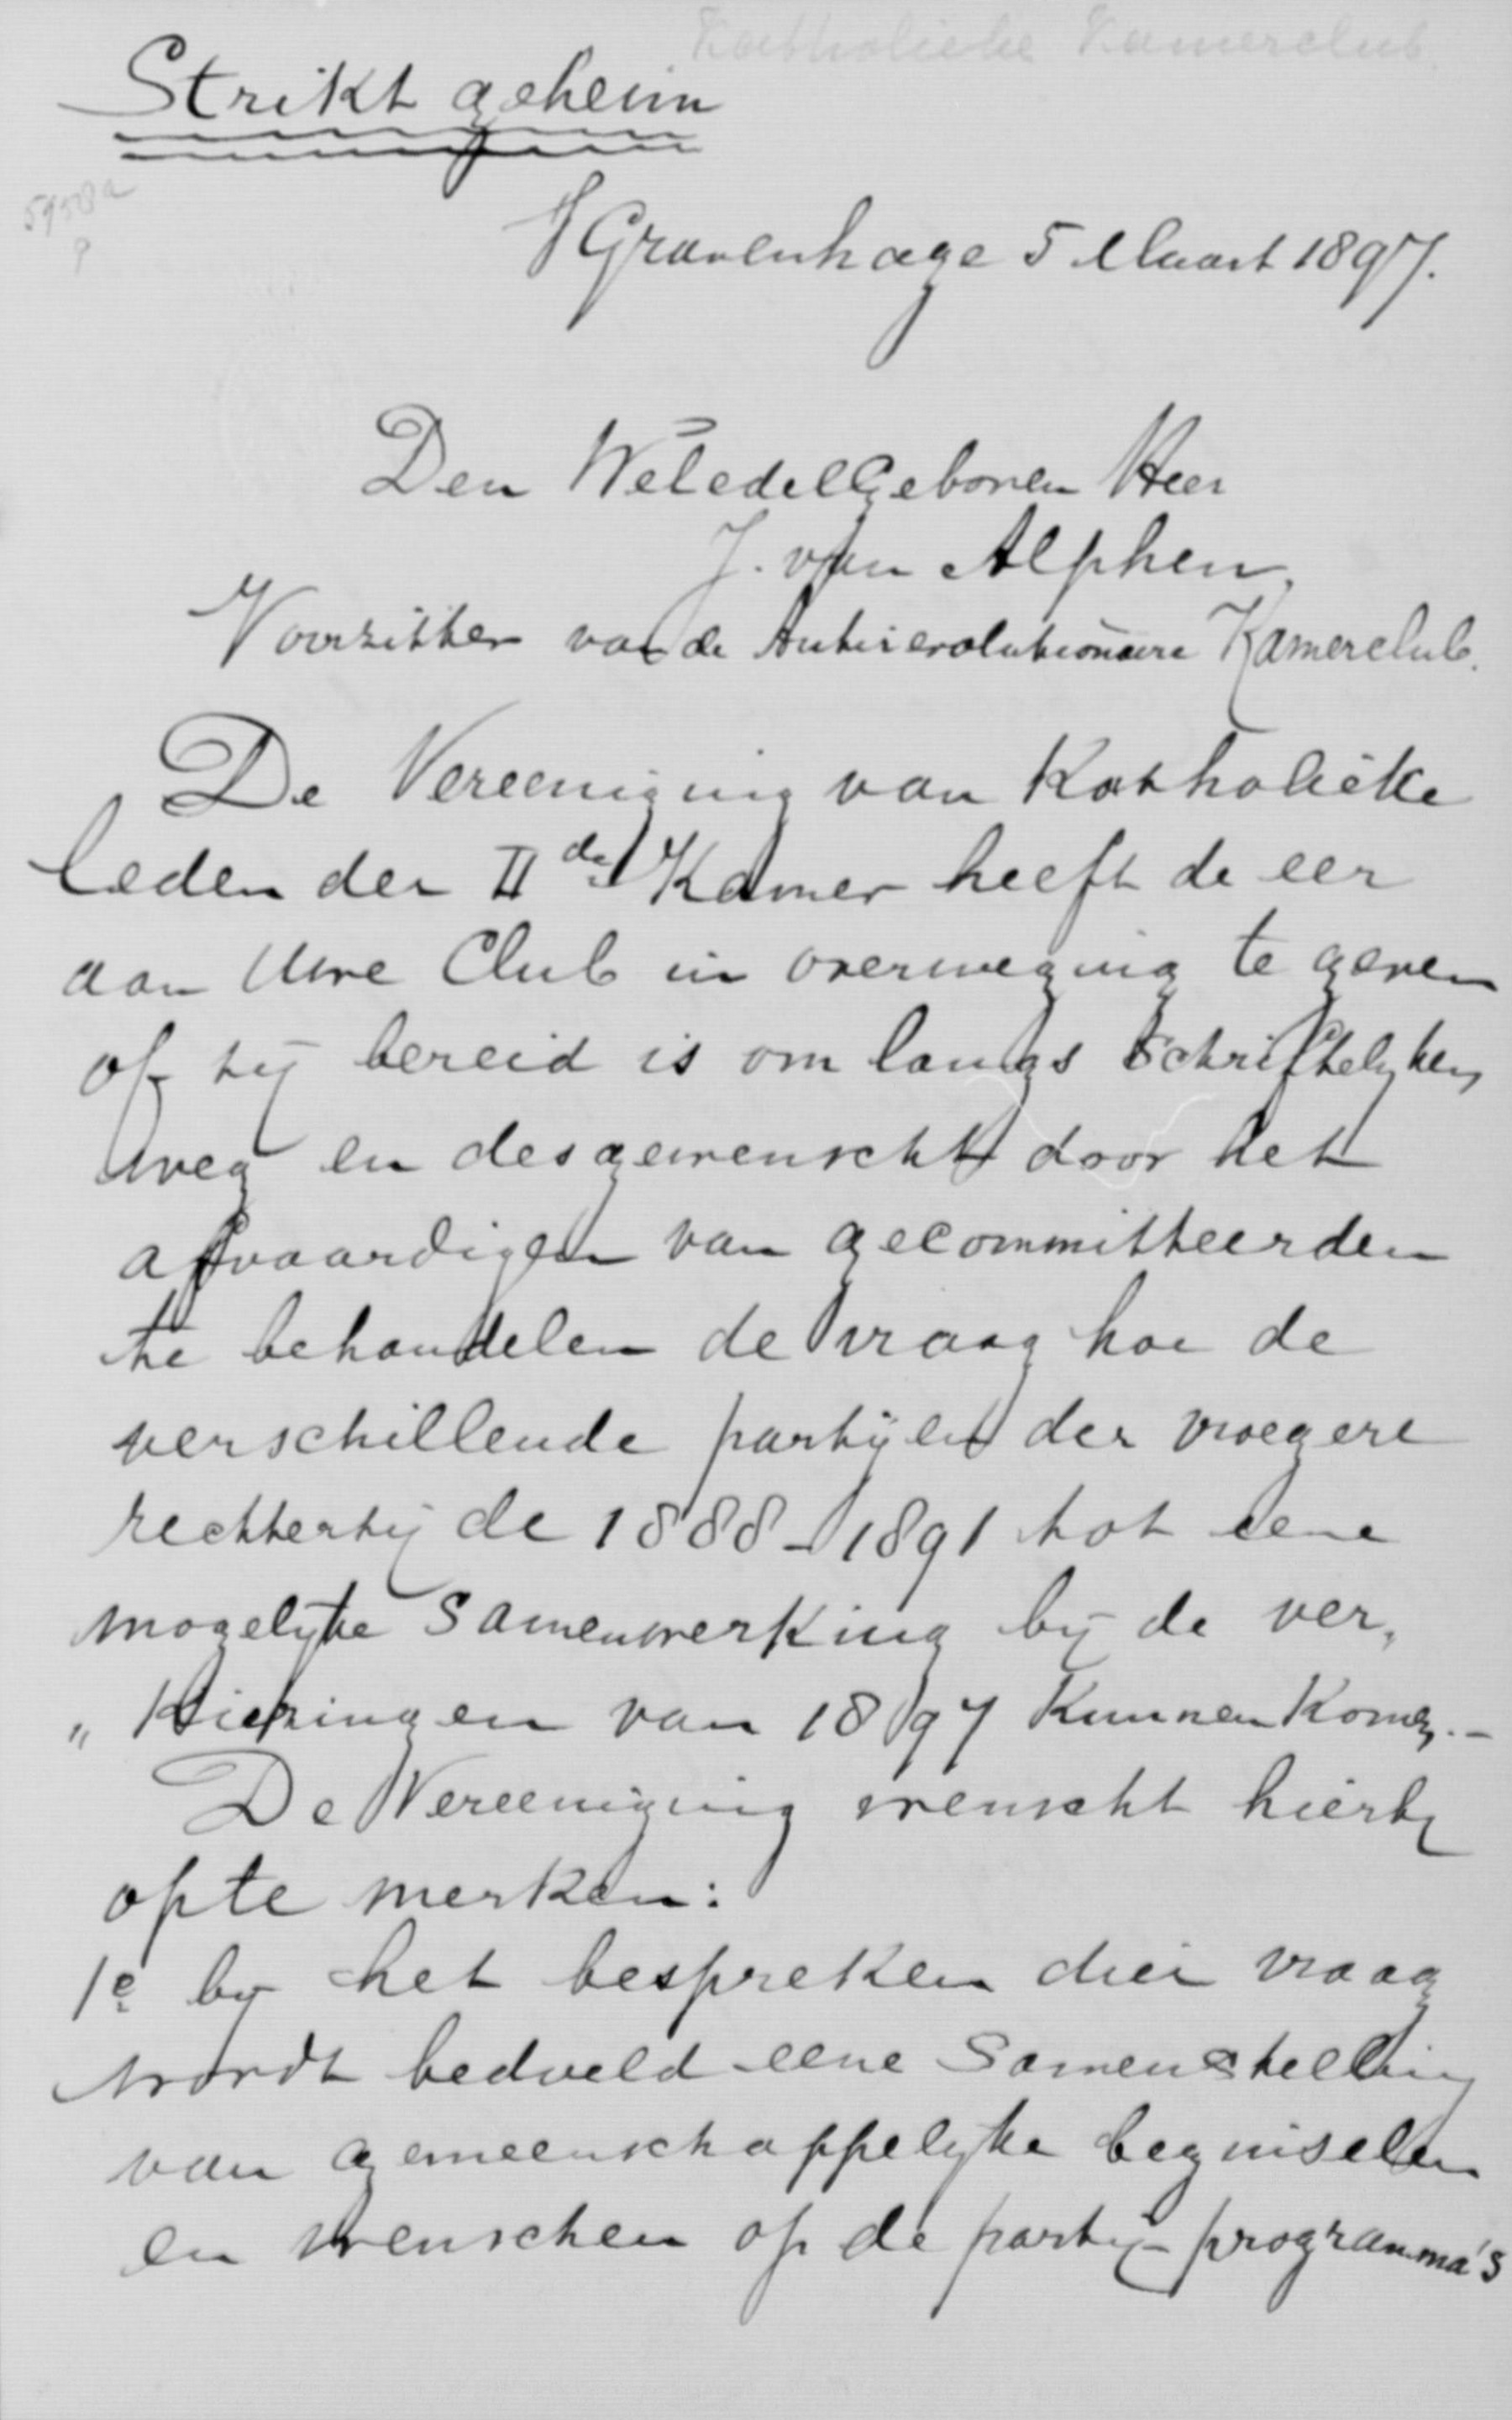 Katholieke Kamerclub.
Strikt geheim
5958a
S Gravenhage 5 Maart 1897.
Den WelEdelGeboren Heer
J. van Alphen,
Voorzitter van de Antirevolutionaire Kamerclub.
De Vereeniging van Katholieke
leden der IIde Kamer heeft de eer
aan Uwe Club in overweging te geven
of zij bereid is om langs schriftelyken
weg en desgewenscht door het
afvaardigen van gecommitteerden
te behandelen de vraag hoe de
verschillende partijen der vroegere
rechterzijde 1888-1891 tot eene
mogelyke samenwerking bij de ver„
„kiezingen van 1897 kunnen komen.-
De Vereeniging wenscht hierby
opte merken:
1e by het bespreken dier vraag
wordt bedoeld eene samenstelling
van gemeenschappelyke beginselen
en wenschen op de partij-programma's